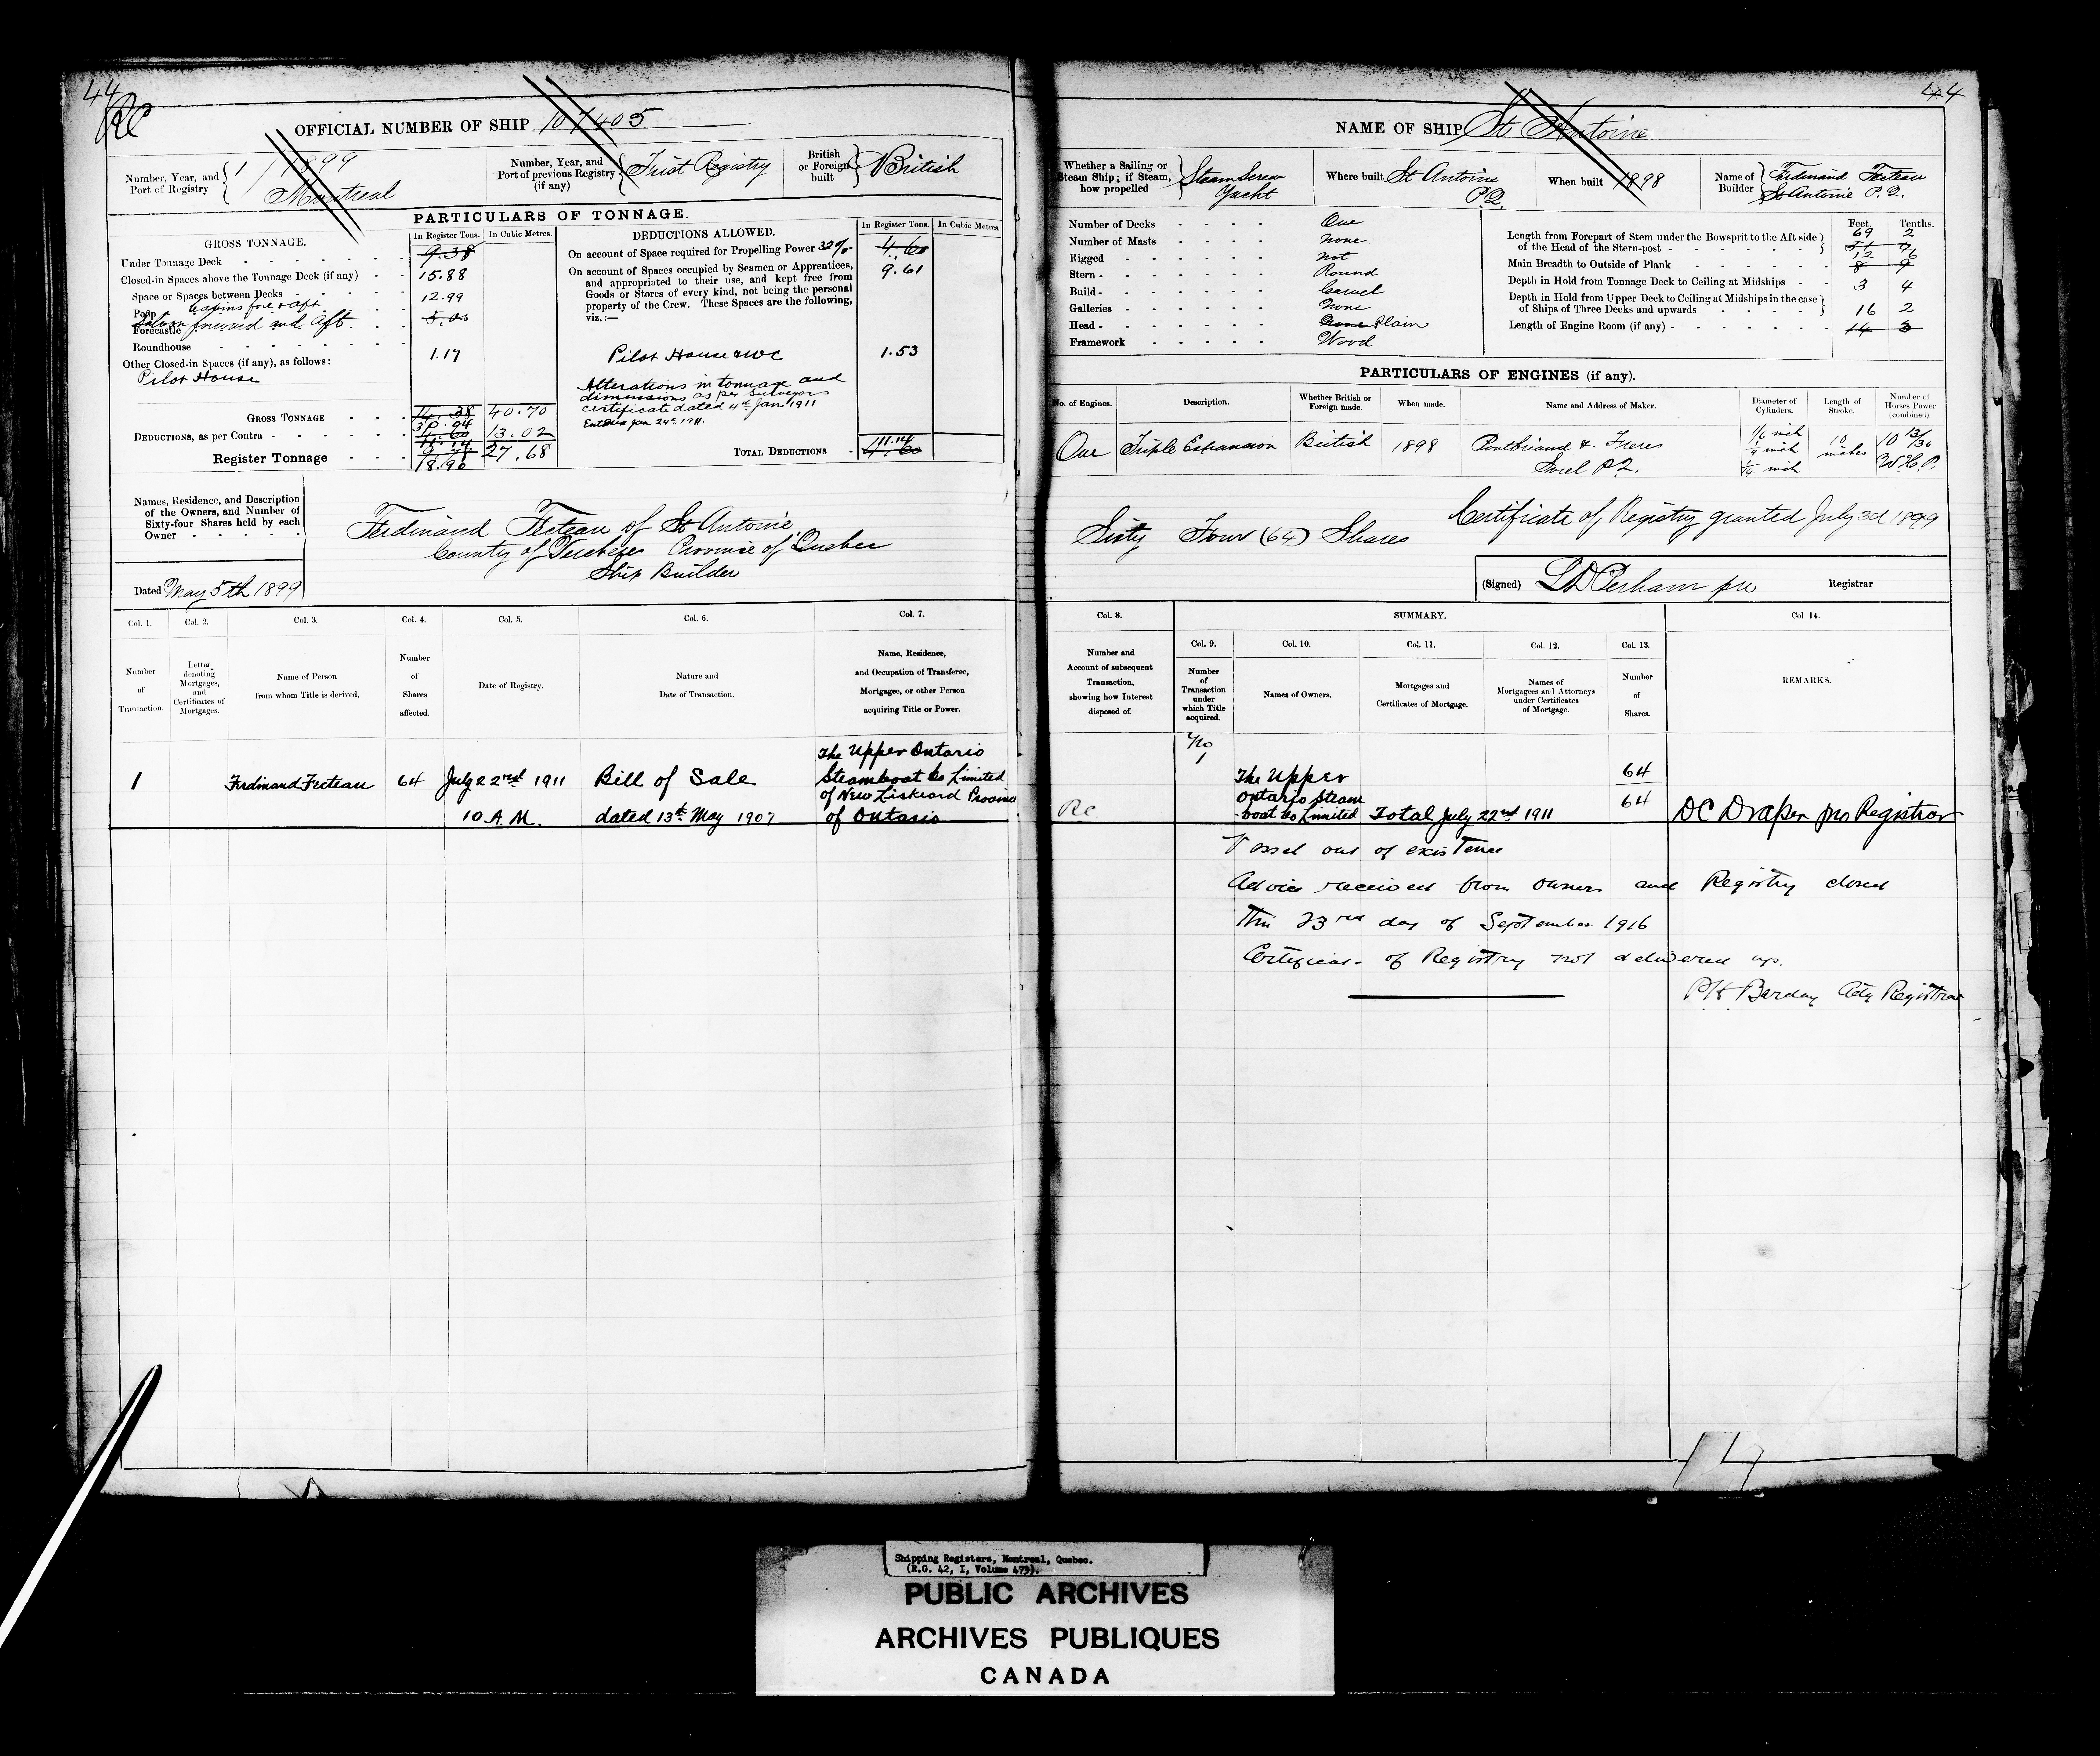 44
RC
OFFICIAL NUMBER OF SHIP 107405
Number, Year, and
Port of Registry
1/1899
Montreal
Number, Year, and
Port of previous Registry
(if any)
First Registry
British
or Foreign
built
British
PARTICULARS OF TONNAGE.
GROSS TONNAGE.
In Register Tons.
In Cubic Metres.
Under Tonnage Deck 9.38
Closed-in Spaces above the Tonnage Deck (if any) 15.88
Space or Spaces between Decks 12.99
Poop Cabins fore & aft
Forecastle Saloon forward and Aft. 5.00
Roundhouse
Other Closed-in Spaces (if any), as follows: 1.17
Pilot House
GROSS TONNAGE 14.38 40.70
30.04
DEDUCTIONS, as per Contra 4.60 13.02
11.14
Register Tonnage 9.78 27.68
18.90
DEDUCTIONS ALLOWED.
In Register Tons.
In Cubic Metres.
On account of Space required for Propelling Power 32% 4.60
On account of Spaces occupied by Seamen or Apprentices, 9.61
and appropriated to their use, and kept free from
Goods or Stores of every kind, not being the personal
property of the Crew. These Spaces are the following,
viz.:—
Pilot House & WC 1.53
Alterations in tonnage and
dimensions as per surveyors
certificate dated 4th Jan 1911
Entered Jan 24th, 1911.
TOTAL DEDUCTIONS 11.14
4.60
Names, Residence, and Description
of the Owners, and Number of
Sixty-four Shares held by each
Owner
Ferdinand Fecteau of St Antoine
County of Province of Quebec
Ship Builder
Dated May 5th 1899
Col. 1. Col. 2. Col. 3. Col. 4. Col. 5. Col. 6. Col. 7.
Number
of
Transaction.
Letter
denoting
Mortgages,
and
Certificates of
Mortgages.
Name of Person
from whom Title is derived.
Number
of
Shares
affected.
Date of Registry.
Nature and
Date of Transaction.
Name, Residence,
and Occupation of Transferee,
Mortgagee, or other Person
acquiring Title or Power.
1 Ferdinand Fecteau 64 July 22nd 1911
10 A.M.
Bill of Sale
dated 13th May 1907
The Upper Ontario
Steamboat Co Limited
of New Liskeard Province
of Ontario
44
NAME OF SHIP St Antoine
Whether a Sailing or
Steam Ship; if Steam,
how propelled
Steam Screw
Yacht
Where built St Antoine
P.Q.
When built 1898
Name of
Builder
Ferdinand Fecteau
St Antoine P.Q.
Number of Decks One
Number of Masts None
Rigged Not
Stern Round
Build Carvel
Galleries None
Head None Plain
Framework Wood
Feet. Tenths.
Length from Forepart of Stem under the Bowsprit to the Aft side
of the Head of the Stern-post 69 2
51 7
Main Breadth to Outside of Plank 12 6
8 9
Depth in Hold from Tonnage Deck to Ceiling at Midships 3 4
Depth in Hold from Upper Deck to Ceiling at Midships in the case
of Ships of Three Decks and upwards
Length of Engine Room (if any) 16 2
14 3
PARTICULARS OF ENGINES (if any).
No. of Engines.
Description.
Whether British or
Foreign made.
When made.
Name and Address of Maker.
Diameter of
Cylinders.
Length of
Stroke.
Number of
Horses Power
(combined).
One Triple Expansion British 1898
Pontbriand & Freres
Sorel P.Q.
1/6 inch
1/9 inch
1/14 inch
10
inches
10 13/30
N.H.P.
Sixty Four (64) Shares
Certificate of Registry granted July 3d 1899
(Signed) Registrar
Col. 8.
SUMMARY.
Col. 9. Col. 10. Col. 11. Col. 12. Col. 13.
Col 14.
Number and
Account of subsequent
Transaction,
showing how Interest
disposed of.
Number
of
Transaction
under
which Title
acquired.
Names of Owners.
Mortgages and
Certificates of Mortgage.
Names of
Mortgagees and Attorneys
under Certificates
of Mortgage.
Number
of
Shares.
REMARKS.
RC
No
1
The Upper
Ontario Steam
boat Co Limited
Total July 22nd 1911
64
64
DC Draper pro Registrar
Vessel out of existence
Advice received from owners and Registry closed
This 23rd day of September 1916
Certificate of Registry not delivered up.
Actg Registrar
Shipping Registers, Montreal, Quebec.
(R.G. 42, I, Volume 479).
PUBLIC ARCHIVES
ARCHIVES PUBLIQUES
CANADA